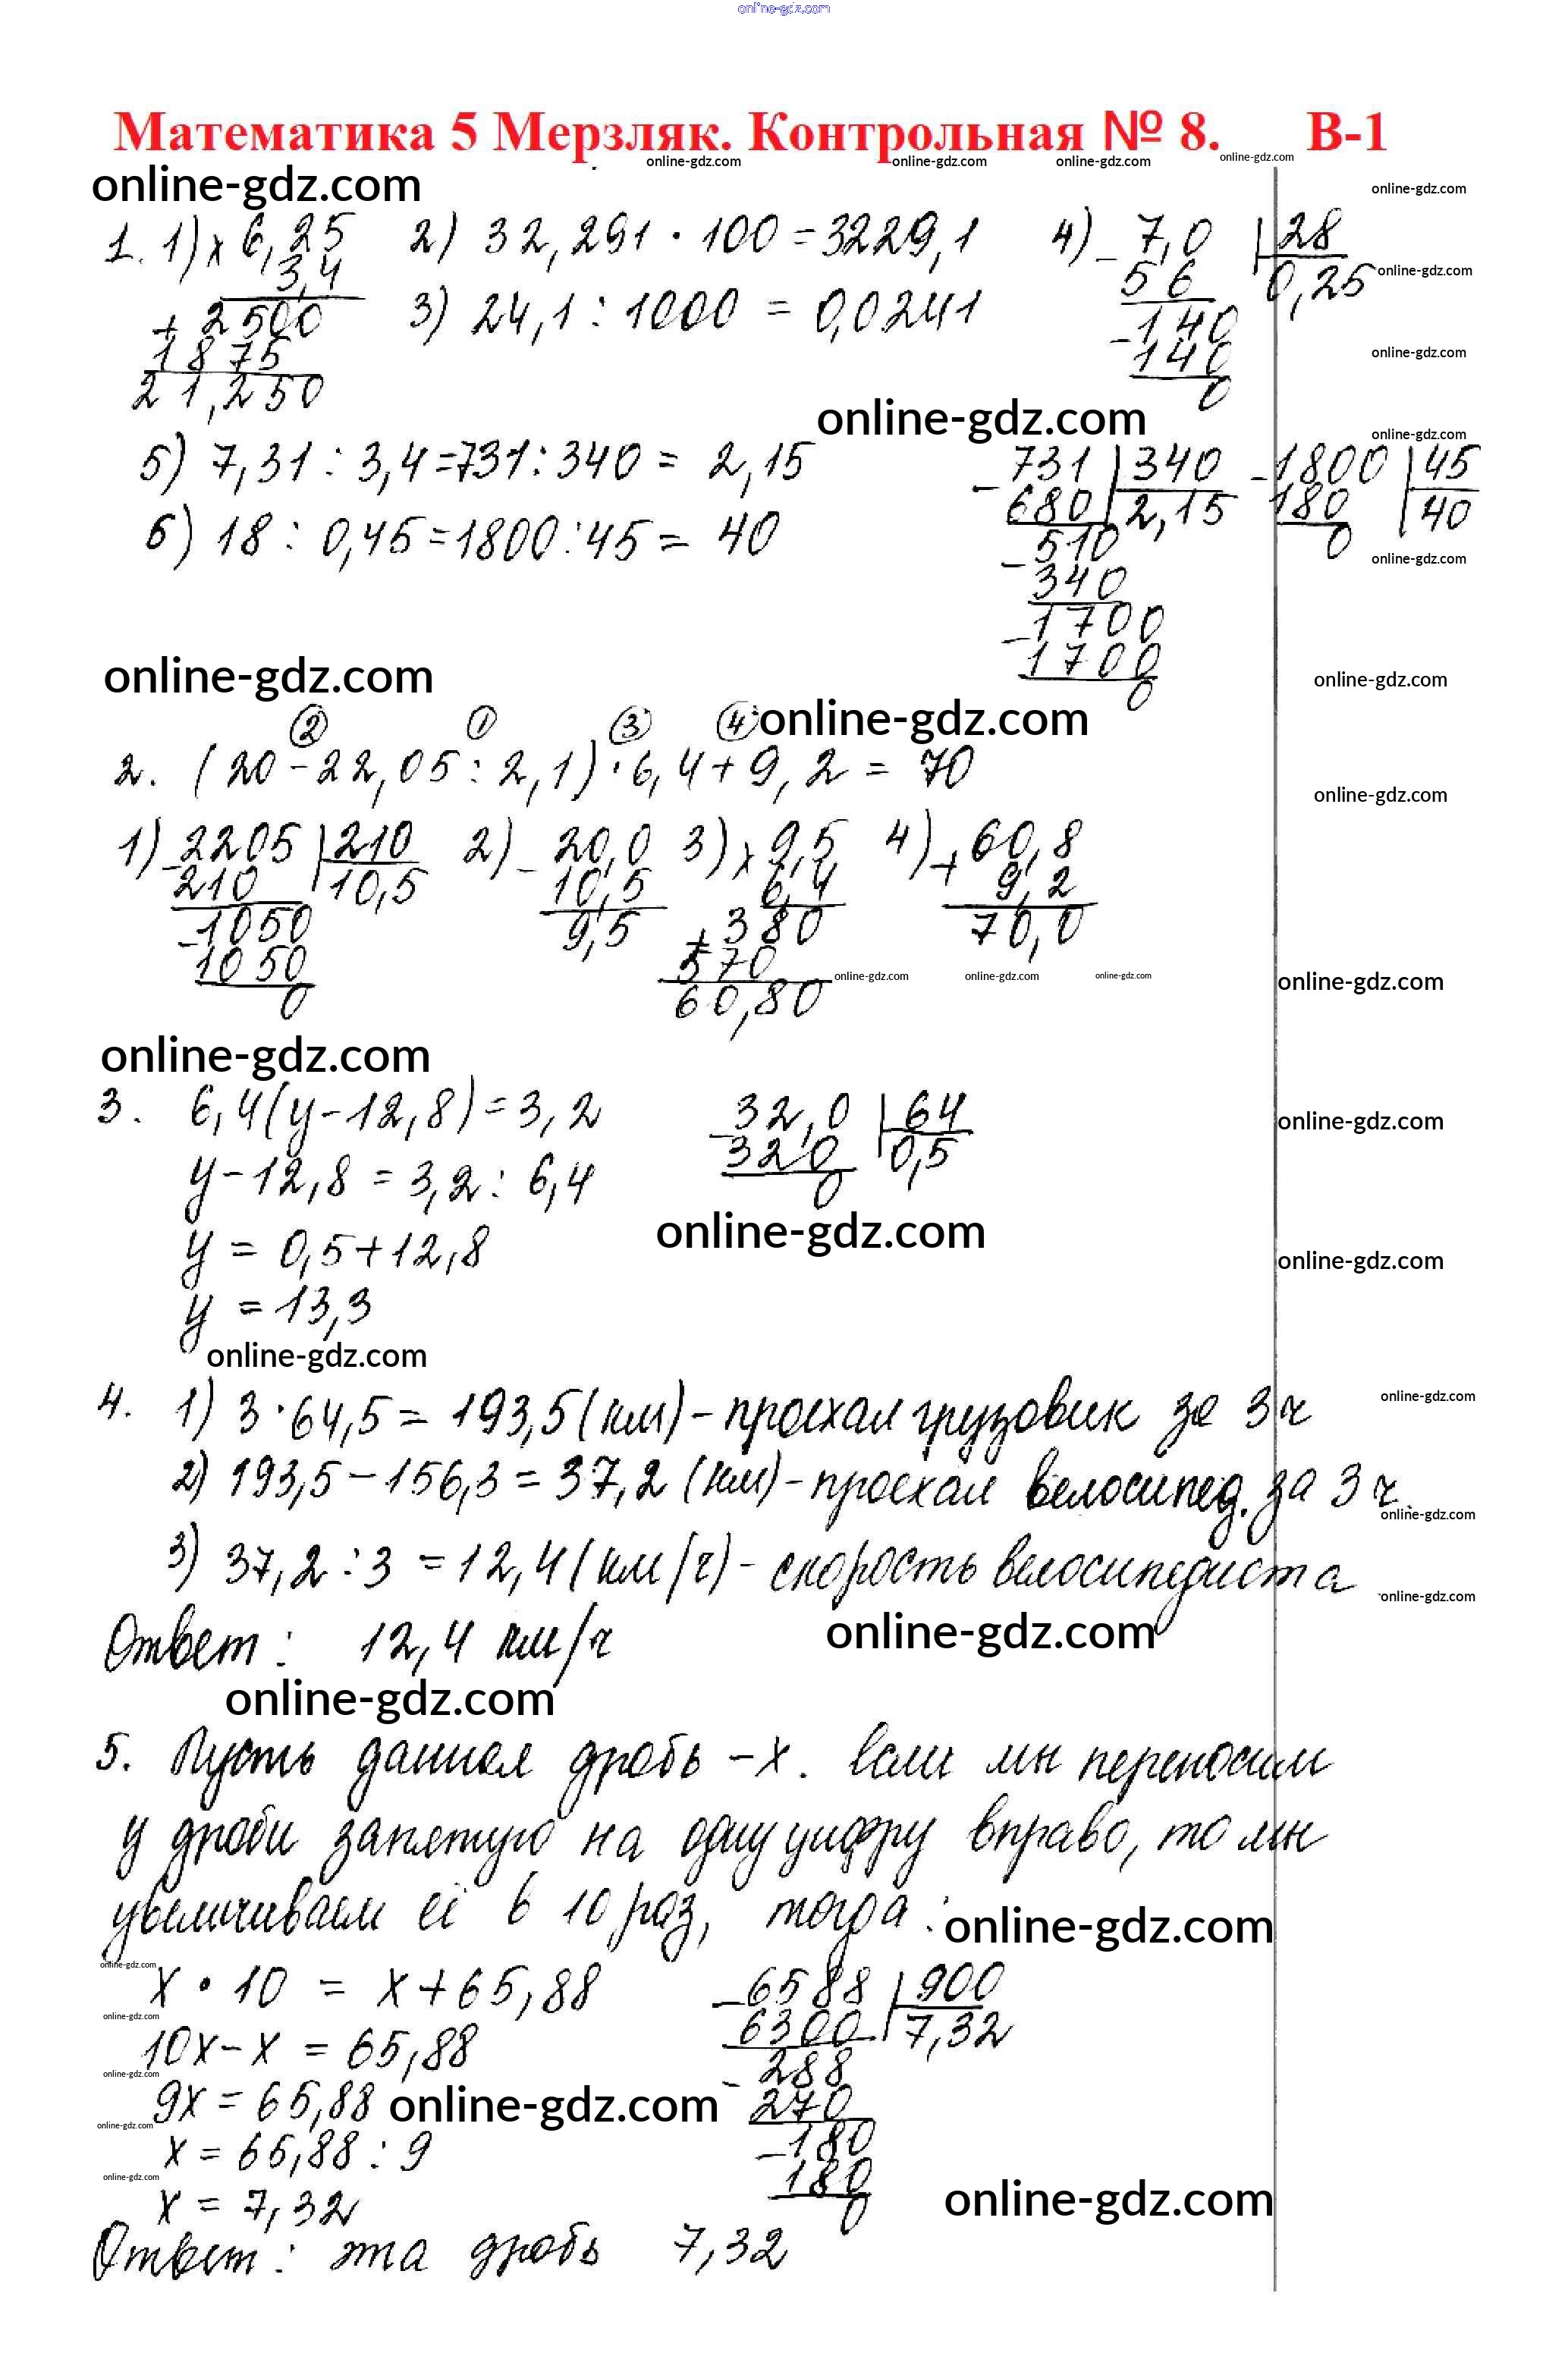 online-gdz.com
Математика 5 Мерзляк. Контрольная № 8. В-1
online-gdz.com online-gdz.com online-gdz.com online-gdz.com
online-gdz.com online-gdz.com
1. 1) × 6,25 2) 32,291 · 100 = 3229,1 4) - 7,0 | 28
3,4 56 0,25 online-gdz.com
+ 2500 3) 24,1 : 1000 = 0,0241 - 140
1875 140 online-gdz.com
21,250 0
online-gdz.com online-gdz.com
5) 7,31 : 3,4 = 731 : 340 = 2,15 - 731 | 340 - 1800 | 45
680 2,15 180 40
6) 18 : 0,45 = 1800 : 45 = 40 - 510 0
online-gdz.com
340
- 1700
1700
0
online-gdz.com online-gdz.com
2 1 3 4 online-gdz.com
2. (20 - 22,05 : 2,1) · 6,4 + 9,2 = 70
online-gdz.com
1) - 2205 | 210 2) - 20,0 3) × 9,5 4) + 60,8
210 10,5 10,5 6,4 9,2
- 1050 9,5 + 380 70,0
1050 570
0 60,80
online-gdz.com online-gdz.com online-gdz.com online-gdz.com
online-gdz.com
3. 6,4(y - 12,8) = 3,2 - 32,0 | 64
online-gdz.com
y - 12,8 = 3,2 : 6,4 320 0,5
0
online-gdz.com
y = 0,5 + 12,8
online-gdz.com
y = 13,3
online-gdz.com
4. 1) 3 · 64,5 = 193,5 (км) - проехал грузовик за 3 ч
online-gdz.com
2) 193,5 - 156,3 = 37,2 (км) - проехал велосипед. за 3 ч.
online-gdz.com
3) 37,2 : 3 = 12,4 (км/ч) - скорость велосипедиста
online-gdz.com
Ответ: 12,4 км/ч online-gdz.com
online-gdz.com
5. Пусть данная дробь - x. Если мы переносим
у дроби запятую на одну цифру вправо, то мы
увеличиваем её в 10 раз, тогда: online-gdz.com
online-gdz.com
x · 10 = x + 65,88 - 6588 | 900
online-gdz.com
6300 7,32
10x - x = 65,88 - 288
online-gdz.com
9x = 65,88 online-gdz.com 270
online-gdz.com
x = 65,88 : 9 - 180
online-gdz.com
180
x = 7,32 0 online-gdz.com
Ответ: эта дробь 7,32